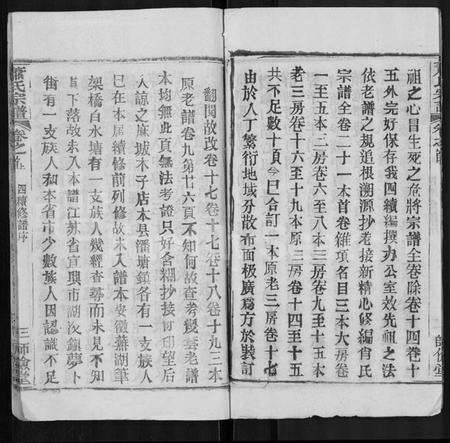 祖之心冒生死之危將宗譜全卷除卷十四卷十
五外完好保存我四續編撰办公室效先祖之法
依老譜之規追根溯源抄老接新精心修編肖氏
宗譜全卷二十一本首卷雜項名目三本大房卷
一至五本二房卷六至八本三房卷九至十五本
老三房卷十六至十九本原三房卷十四至十五
老二房共十頁今已合訂一本原老三房卷十七
由於人丁繁衍地域分散布面極廣為方於裝訂
翻閱故改卷十七卷十七卷十八卷十九三本
原老譜卷九第十六頁不知何故查考幾套老譜
本均無此頁無法考證只好含糊抄接盲望后
人諒之麻城木子店本县潘塘鎮各有一支族人
已在本届續修前列修故未入譜本安徽蕪湖筆
架橋白水塘有一支族人幾經查尋而未見不知
下落故未入本譜江苏省宜興市湖㳇鎮夢卜
街有一支族人和本省市少數族人因認識不足
蕭氏宗譜 卷之首 四續修譜序
三 師儉堂